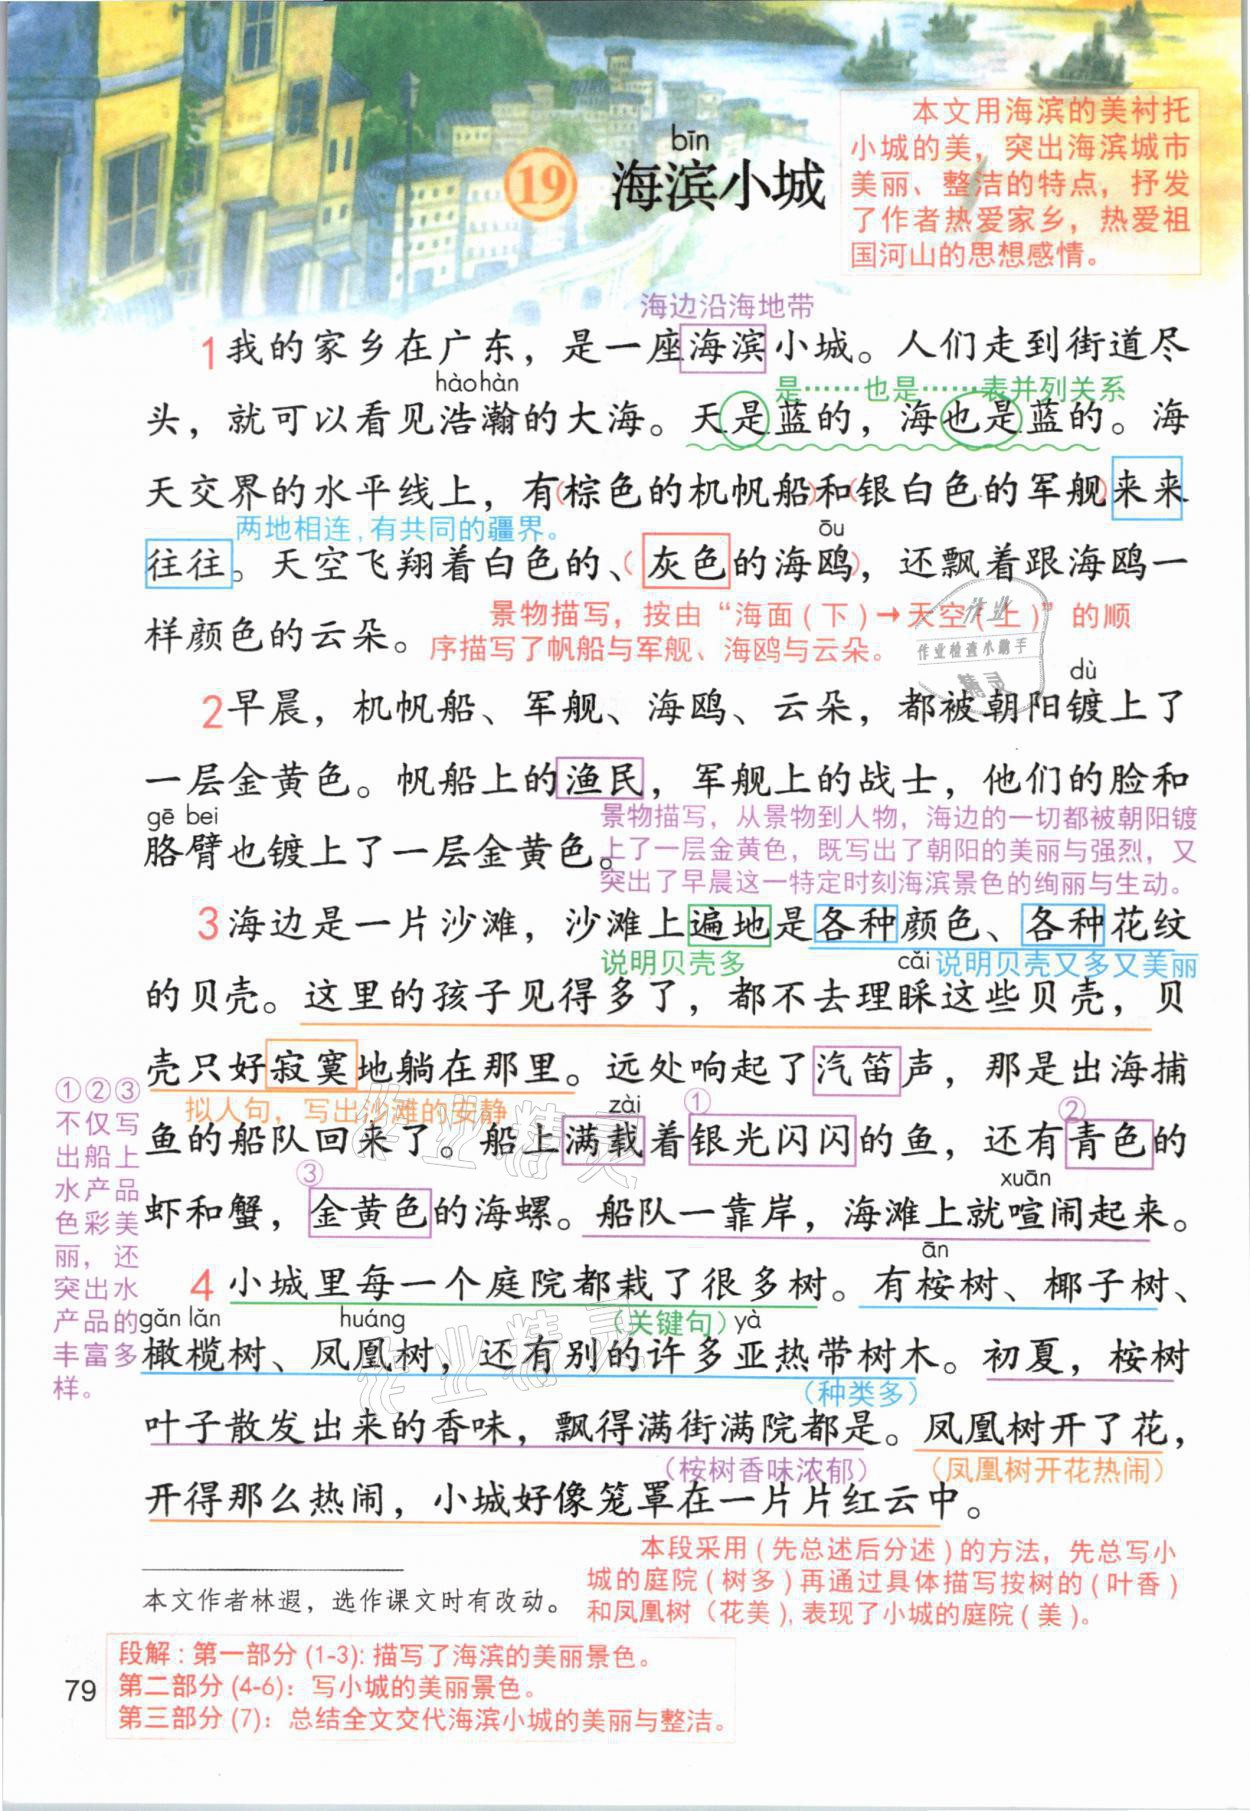 本文用海滨的美衬托
小城的美，突出海滨城市
美丽、整洁的特点，抒发
了作者热爱家乡，热爱祖
国河山的思想感情。
bīn
19 海滨小城
海边沿海地带
1我的家乡在广东，是一座海滨小城。人们走到街道尽
hào hàn
是……也是……表并列关系
头，就可以看见浩瀚的大海。天是蓝的，海也是蓝的。海
天交界的水平线上，有(棕色的机帆船)和(银白色的军舰)来来
两地相连，有共同的疆界。
ōu
往往。天空飞翔着白色的、(灰色的海鸥)，还飘着跟海鸥一
景物描写，按由“海面(下)→天空(上)”的顺
样颜色的云朵。
序描写了帆船与军舰、海鸥与云朵。
作业
作业检查小助手
精灵
dù
2早晨，机帆船、军舰、海鸥、云朵，都被朝阳镀上了
一层金黄色。帆船上的渔民，军舰上的战士，他们的脸和
gē bei
胳臂也镀上了一层金黄色。
景物描写，从景物到人物，海边的一切都被朝阳镀
上了一层金黄色，既写出了朝阳的美丽与强烈，又
突出了早晨这一特定时刻海滨景色的绚丽与生动。
3海边是一片沙滩，沙滩上遍地是各种颜色、各种花纹
说明贝壳多
cǎi
说明贝壳又多又美丽
的贝壳。这里的孩子见得多了，都不去理睬这些贝壳，贝
壳只好寂寞地躺在那里。远处响起了汽笛声，那是出海捕
拟人句，写出沙滩的安静
zài
①
②
鱼的船队回来了。船上满载着银光闪闪的鱼，还有青色的
③
xuān
虾和蟹，金黄色的海螺。船队一靠岸，海滩上就喧闹起来。
①②③
不仅写
出船上
水产品
色彩美
丽，还
突出水
产品的
丰富多
样。
ān
4小城里每一个庭院都栽了很多树。有桉树、椰子树、
gǎn lǎn
huáng
(关键句)
yà
橄榄树、凤凰树，还有别的许多亚热带树木。初夏，桉树
(种类多)
叶子散发出来的香味，飘得满街满院都是。凤凰树开了花，
(桉树香味浓郁)
(凤凰树开花热闹)
开得那么热闹，小城好像笼罩在一片片红云中。
本段采用(先总述后分述)的方法，先总写小
城的庭院(树多)再通过具体描写按树的(叶香)
和凤凰树（花美），表现了小城的庭院(美)。
本文作者林遐，选作课文时有改动。
段解：第一部分(1-3)：描写了海滨的美丽景色。
第二部分(4-6)：写小城的美丽景色。
第三部分(7)：总结全文交代海滨小城的美丽与整洁。
79
作业精灵
作业精灵